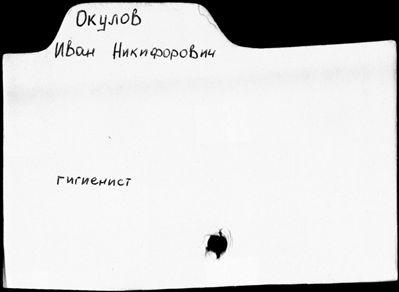 Окулов
Иван Никифорович
гигиенист